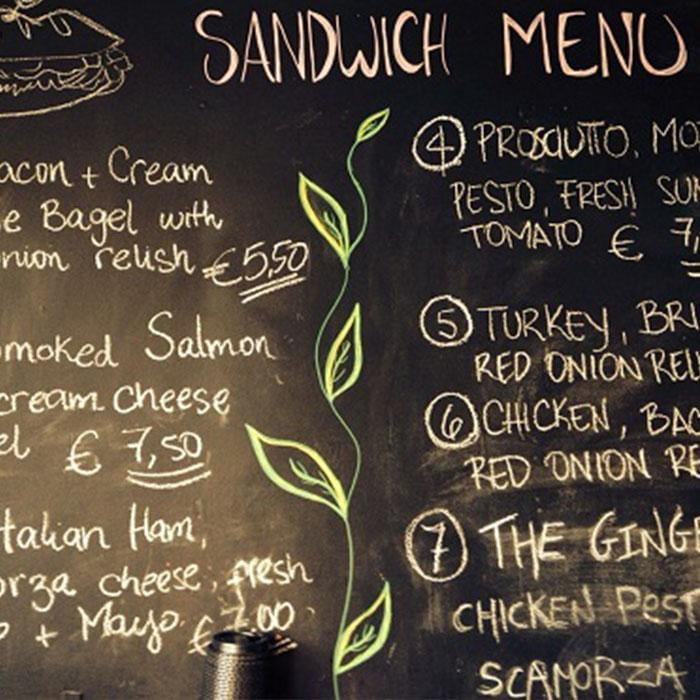 SANDWICH MENU
acon + Cream
e Bagel with
nion relish €5,50
moked Salmon
cream cheese
el € 7,50
talian Ham,
orza cheese, fresh
+ Mayo. € 7.00
4 PROSCIUTTO, MO
PESTO, FRESH SUN
TOMATO € 7,
5 TURKEY, BRI
RED ONION REL
6 CHICKEN, BAC
RED ONION RE
7 THE GINGE
CHICKEN PEST
SCAMORZA